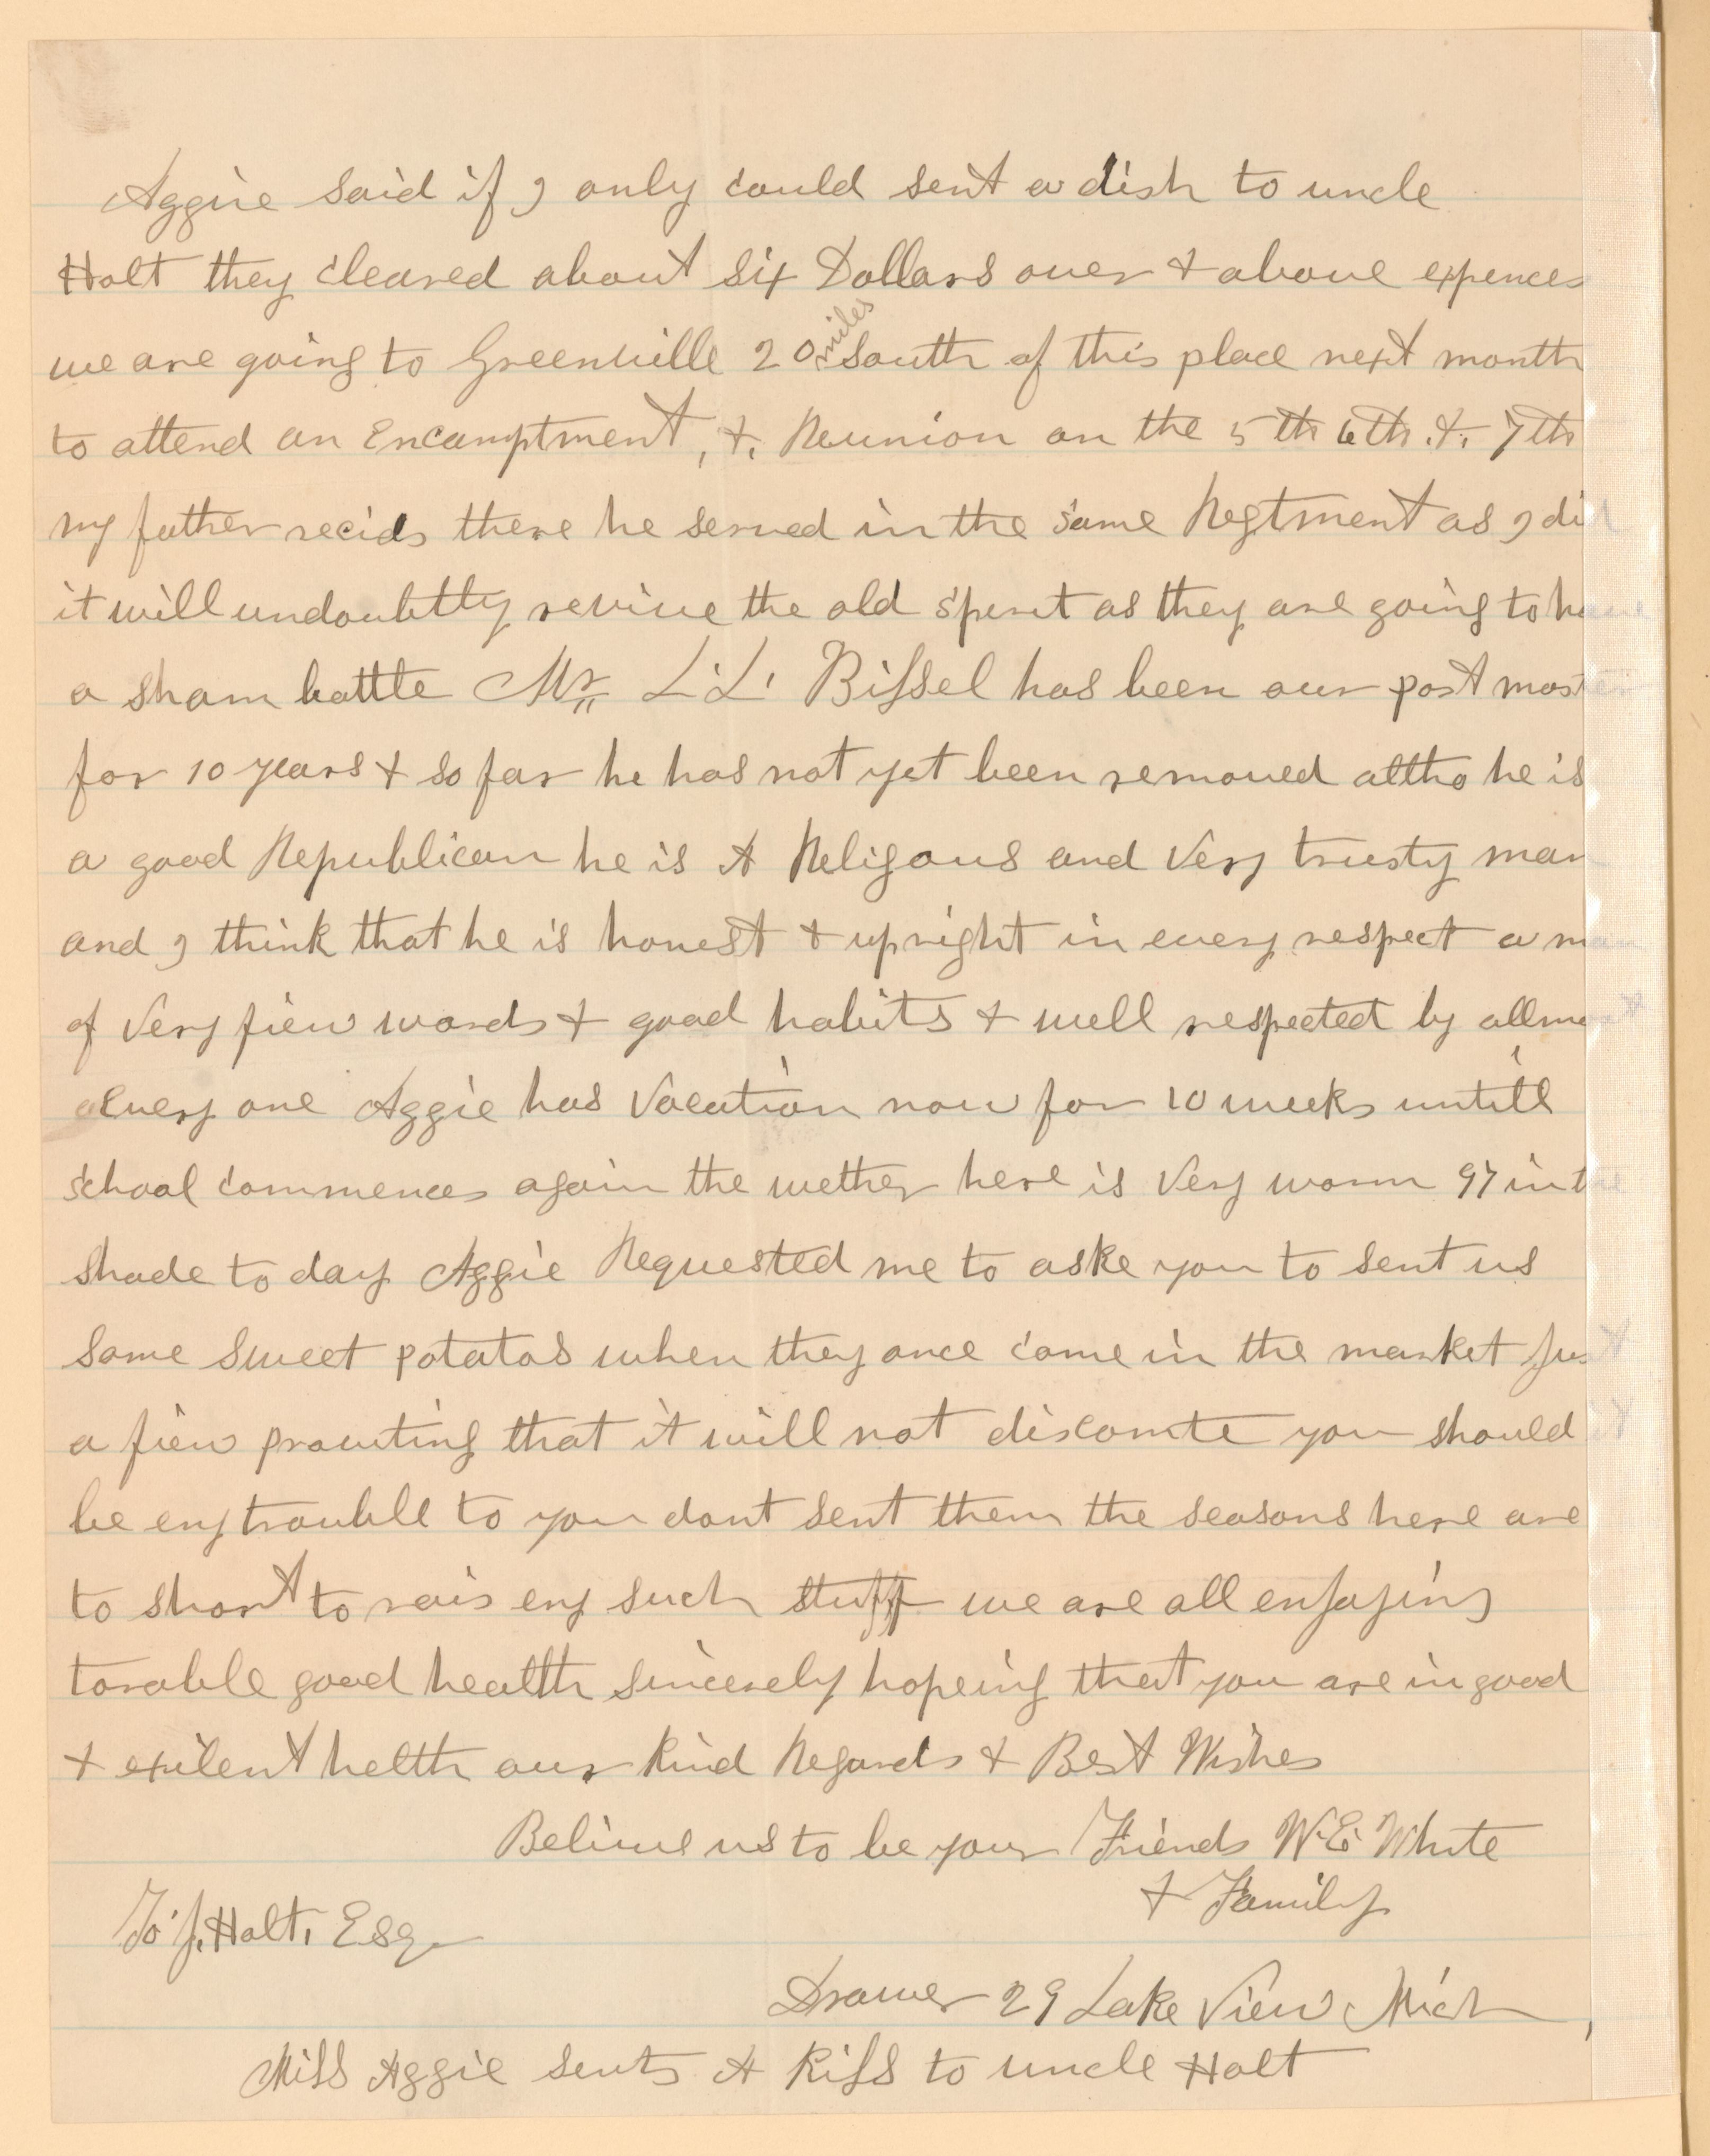 Aggie said if I only could sent a dish to uncle
Holt they cleared about six Dollars over & above expences
we are going to Greenville 20 miles South of this place next month
to attend an Encamptment, &, Reunion on the 5th 6th .&. 7th
my father recids there he served in the same Regtment as I did
it will undoubttly revive the old sperit as they are going to have
a sham battle Mr,, L. L. Bissel has been our post master
for 10 years & so far he has not yet been removed altho he is
a good Republican he is A Religous and Very trusty man
and I think that he is honest & upright in every respect a man
of Very fiew words & good habits & well respected by allmost
every one Aggie has Vacation now for 10 weeks untill
school commences again the wether here is Very worm 97 in the
shade to day Aggie Requested me to aske you to sent us
some sweet potatos when they once come in the market Just
a fiew prouiting that it will not discomte you should it
be eny trouble to you dont sent them the seasons here are
to short to rais eny such stuff we are all enjoying
torable good health sincerely hopeing that you are in good
& exilent helth our Kind Regards & Best Wishes
Believe us to be your Friends W. E. White
& Family
To J. Holt, Esq
Drawer 29 Lake View Mich,
Miss Aggie sents A Kiss to uncle Holt